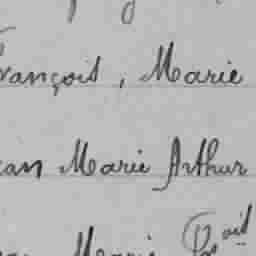 rançois, Marie
ean Marie Arthur
Marie